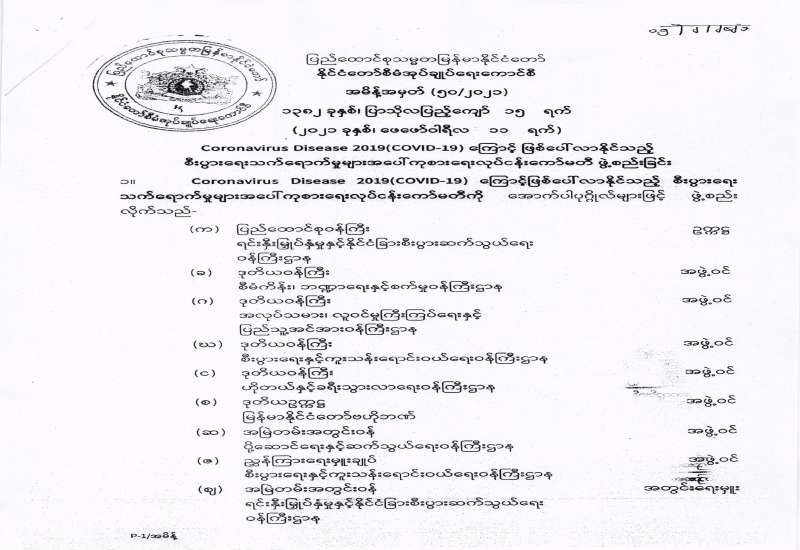 ပြည်ထောင်စုသမ္မတမြန်မာနိုင်ငံတော်
နိုင်ငံတော်စီမံအုပ်ချုပ်ရေးကောင်စီ
အမိန့်အမှတ် (၅၀/၂၀၂၁)
၁၃၈၂ ခုနှစ်၊ ပြာသိုလပြည့်ကျော် ၁၅ ရက်
(၂၀၂၁ ခုနှစ်၊ ဖေဖော်ဝါရီလ ၁၁ ရက်)
Coronavirus Disease 2019(COVID-19) ကြောင့် ဖြစ်ပေါ်လာနိုင်သည့်
စီးပွားရေးသက်ရောက်မှုများအပေါ်ကုစားရေးလုပ်ငန်းကော်မတီ ဖွဲ့စည်းခြင်း
၁။ Coronavirus Disease 2019(COVID-19) ကြောင့်ဖြစ်ပေါ်လာနိုင်သည့် စီးပွားရေး
သက်ရောက်မှုများအပေါ်ကုစားရေးလုပ်ငန်းကော်မတီကို အောက်ပါပုဂ္ဂိုလ်များဖြင့် ဖွဲ့စည်း
လိုက်သည်-
(က) ပြည်ထောင်စုဝန်ကြီး ဥက္ကဋ္ဌ
ရင်းနှီးမြှုပ်နှံမှုနှင့်နိုင်ငံခြားစီးပွားဆက်သွယ်ရေး
ဝန်ကြီးဌာန
(ခ) ဒုတိယဝန်ကြီး အဖွဲ့ဝင်
စီမံကိန်း၊ ဘဏ္ဍာရေးနှင့်စက်မှုဝန်ကြီးဌာန
(ဂ) ဒုတိယဝန်ကြီး အဖွဲ့ဝင်
အလုပ်သမား၊ လူဝင်မှုကြီးကြပ်ရေးနှင့်
ပြည်သူ့အင်အားဝန်ကြီးဌာန
(ဃ) ဒုတိယဝန်ကြီး အဖွဲ့ဝင်
စီးပွားရေးနှင့်ကူးသန်းရောင်းဝယ်ရေးဝန်ကြီးဌာန
(င) ဒုတိယဝန်ကြီး အဖွဲ့ဝင်
ဟိုတယ်နှင့်ခရီးသွားလာရေးဝန်ကြီးဌာန
(စ) ဒုတိယဥက္ကဋ္ဌ အဖွဲ့ဝင်
မြန်မာနိုင်ငံတော်ဗဟိုဘဏ်
(ဆ) အမြဲတမ်းအတွင်းဝန် အဖွဲ့ဝင်
ပို့ဆောင်ရေးနှင့်ဆက်သွယ်ရေးဝန်ကြီးဌာန
(ဇ) ညွှန်ကြားရေးမှူးချုပ် အဖွဲ့ဝင်
စီးပွားရေးနှင့်ကူးသန်းရောင်းဝယ်ရေးဝန်ကြီးဌာန
(ဈ) အမြဲတမ်းအတွင်းဝန် အတွင်းရေးမှူး
ရင်းနှီးမြှုပ်နှံမှုနှင့်နိုင်ငံခြားစီးပွားဆက်သွယ်ရေး
ဝန်ကြီးဌာန
P-1/အမိန့်